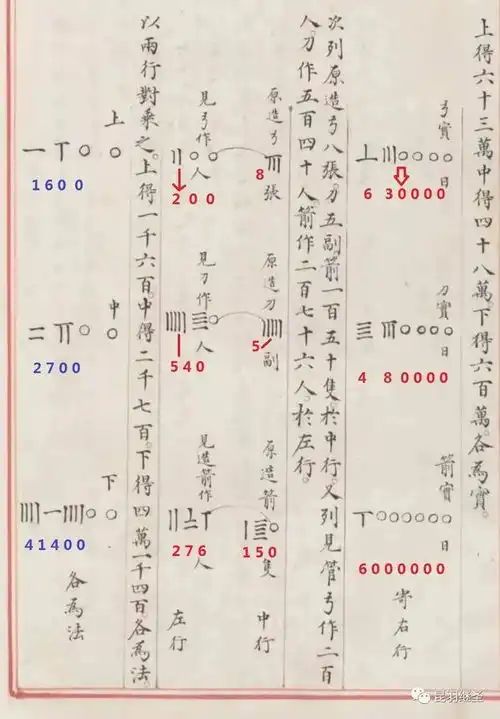 上得六十三萬。中得四十八萬。下得六百。各為實。
弓實
丄〣○○○○
日
6 30000
刀實
亖〣○○○○
日
4 80000
箭實
丅○○○○○○
日
6000000
寄右行
次列原造弓八張。刀五副。箭一百五十隻。於中行。又列見管弓作二百
人。刀作五百四十人。箭作二百七十六人。於左行。
原造弓
8
張
原造刀
5
副
原造箭
150
隻
中行
見弓作
〢○○
人
200
見刀作
540
人
見造箭作
276
人
左行
以兩行對乘之。上得一千六百。中得二千七百。下得四萬一千四百。各為法。
上
一丅○○
1600
中
2700
下
41400
各為法
昆羽继圣